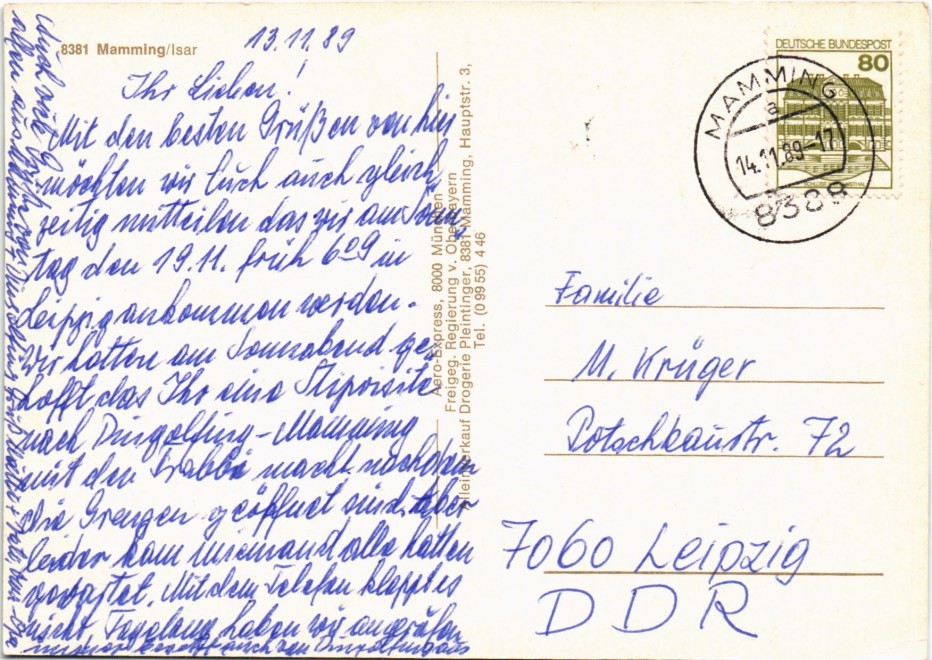 8381 Mamming/Isar
13.11.89
Ihr Lieben!
Mit den besten Grüßen von hier
möchten wir Euch auch gleich
zeitig mitteilen das wir am Sonn
tag den 19.11. früh 6 09 in
Leipzig ankommen werden.
Wir hatten am Sonnabend ge
hofft das Ihr eine Stipvisite
nach Dingolfing-Mamming
mit den Trabbi macht nachdem
die Grenzen geöffnet sind. Aber
leider kam niemand alle hatten
gewartet. Mit dem Telefon klappt es
nicht. Tagelang haben wir angerufen
Auch viele Grüße von
allen aus Mamming
Aero-Express, 8000 München
Freigeg. Regierung v. Oberbayern
Alleinverkauf Drogerie Pleintinger, 8381 Mamming, Hauptstr. 3,
Tel. (0 99 55) 4 46
DEUTSCHE BUNDESPOST
80
MAMMING
a
14.11.89-17
8389
Familie
M. Krüger
Potschkaustr. 72
7060 Leipzig
DDR